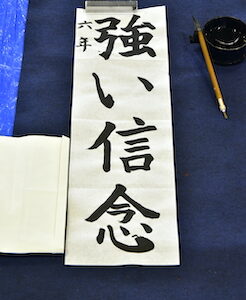 強い信念
六年